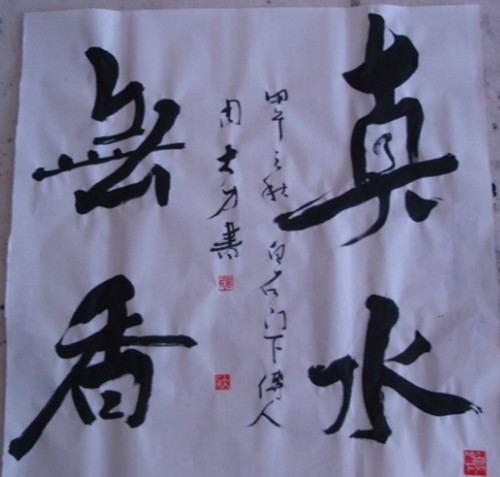 真水
無香
甲午之秋白石门下傳人
周大力書